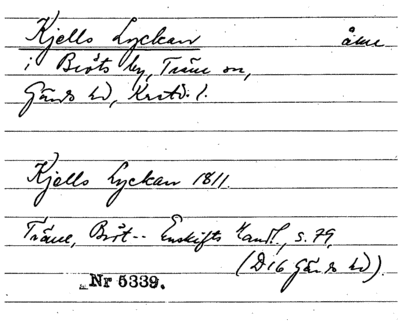 Kjells Lyckan åker
i Bröts by, Träne sn,
Gärds hd, Krstd. l.
Kjells Lyckan 1811.
Träne, Bröt -- Enskifts Handl., s. 79
(D16 Gärds hd).
Nr 5339.